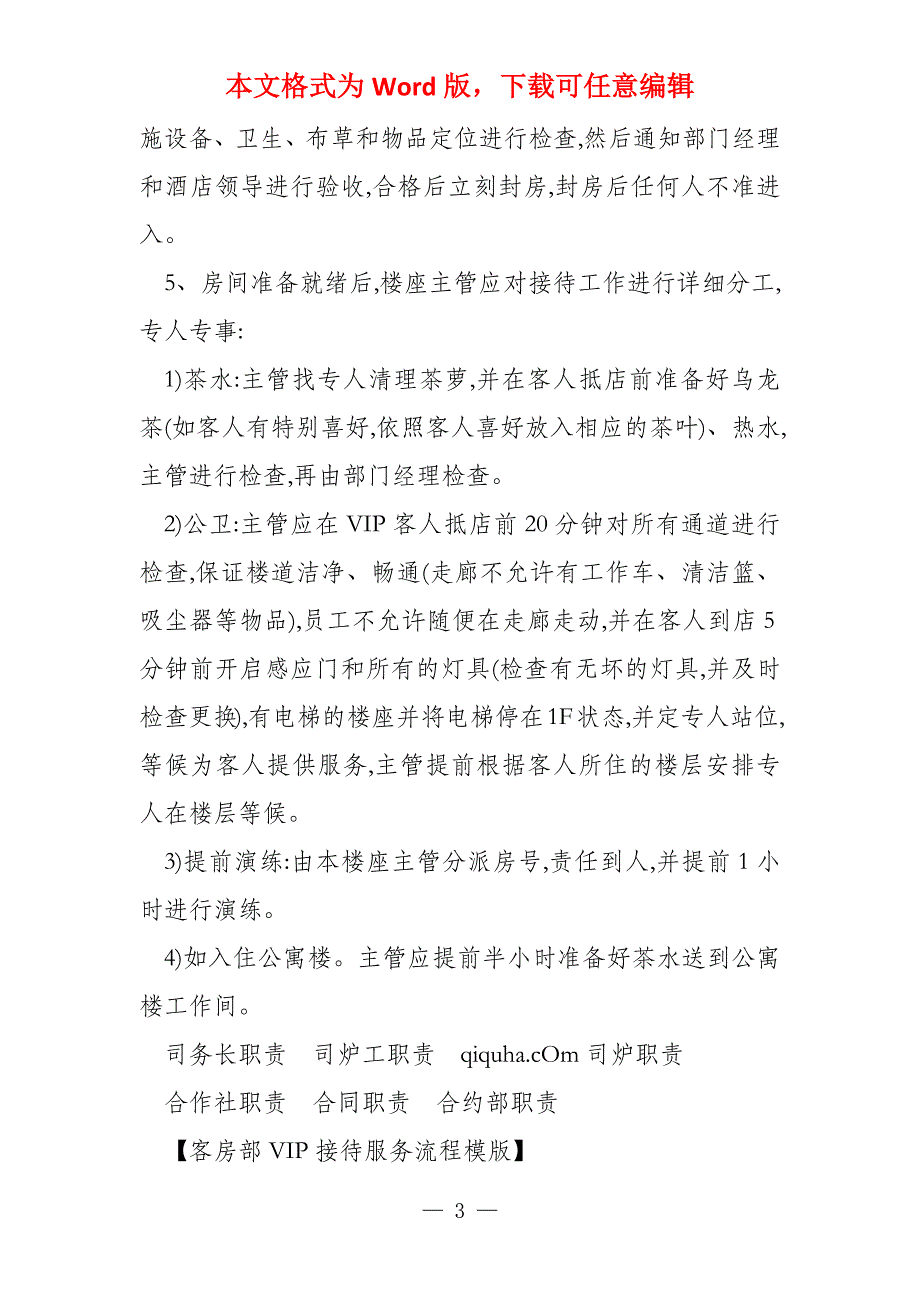 本文格式为 Word 版，下载可任意编辑
施设备、卫生、布草和物品定位进行检查,然后通知部门经理
和酒店领导进行验收,合格后立刻封房,封房后任何人不准进
入。
5、房间准备就绪后,楼座主管应对接待工作进行详细分工,
专人专事:
1)茶水:主管找专人清理茶萝,并在客人抵店前准备好乌龙
茶(如客人有特别喜好,依照客人喜好放入相应的茶叶)、热水,
主管进行检查,再由部门经理检查。
2)公卫:主管应在 VIP 客人抵店前 20 分钟对所有通道进行
检查,保证楼道洁净、畅通(走廊不允许有工作车、清洁篮、
吸尘器等物品),员工不允许随便在走廊走动,并在客人到店 5
分钟前开启感应门和所有的灯具(检查有无坏的灯具,并及时
检查更换),有电梯的楼座并将电梯停在 1F 状态,并定专人站位,
等候为客人提供服务,主管提前根据客人所住的楼层安排专
人在楼层等候。
3)提前演练:由本楼座主管分派房号,责任到人,并提前 1 小
时进行演练。
4)如入住公寓楼。主管应提前半小时准备好茶水送到公寓
楼工作间。
司务长职责 司炉工职责 qiquha.cOm 司炉职责
合作社职责 合同职责 合约部职责
【客房部 VIP 接待服务流程模版】
— 3 —